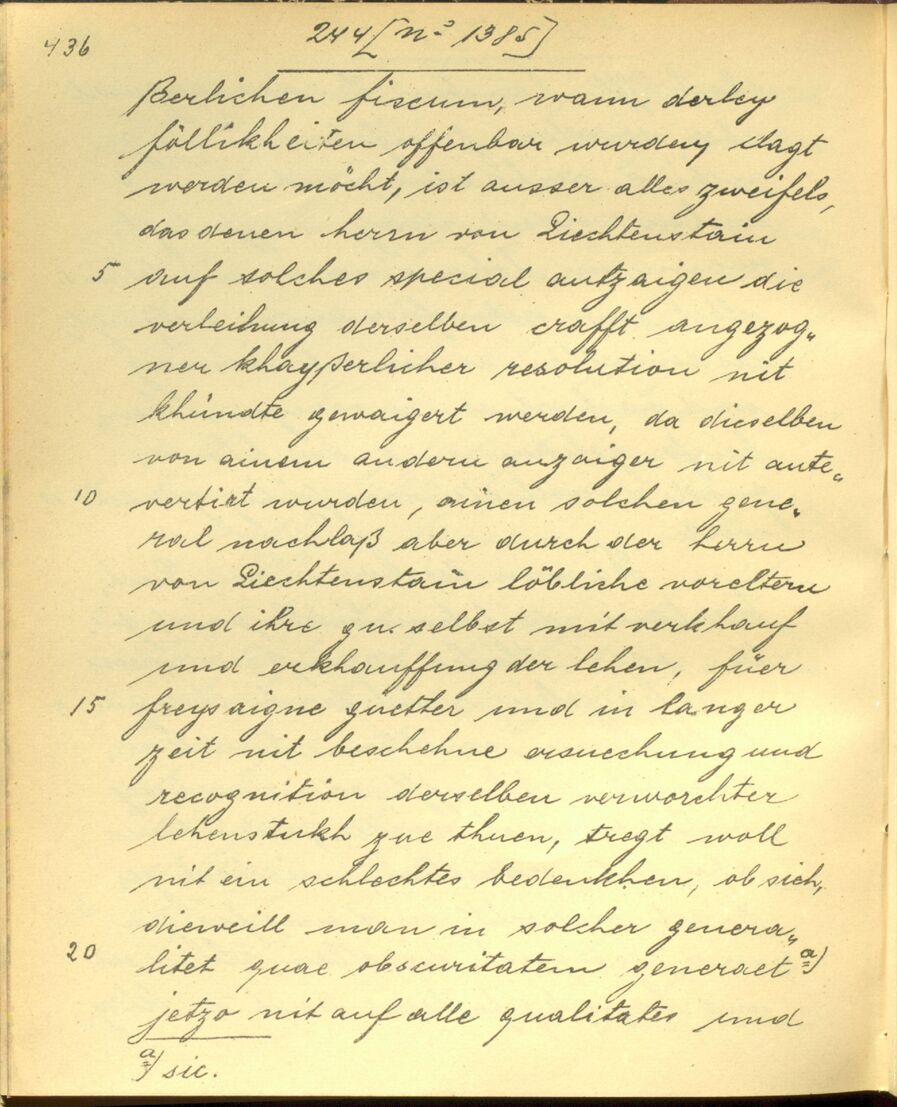 436
244 [nº 1385]
ßerlichen fiscum, wann derley
föllikheiten offenbar wurden, clagt
werden möcht, ist ausser alles zweifels,
das denen herrn von Liechtenstain
5 auf solches special antzaigen die
verleihung derselben crafft angezog„
ner khayßerlicher resolution nit
khündte gewaigert werden, da dieselben
von ainem andern anzaiger nit ante„
10 vertirt wurden, ainen solchen gene„
ral nachlaß aber durch der herrn
von Liechtenstain löbliche voreltern
und ihre gn. selbst mit verkhauf
und erkhauffung der lehen, füer
15 freysaigne güetter und in langer
zeit nit beschehne ersuechung und
recognition derselben verworchter
lehenstukh zue thuen, tregt woll
nit ein schlechtes bedenkhen, ob sich,
dieweill man in solcher genera„
20 litet quae obscuritatem generaet a)
jetzo nit auf alle qualitates und
a) sic.